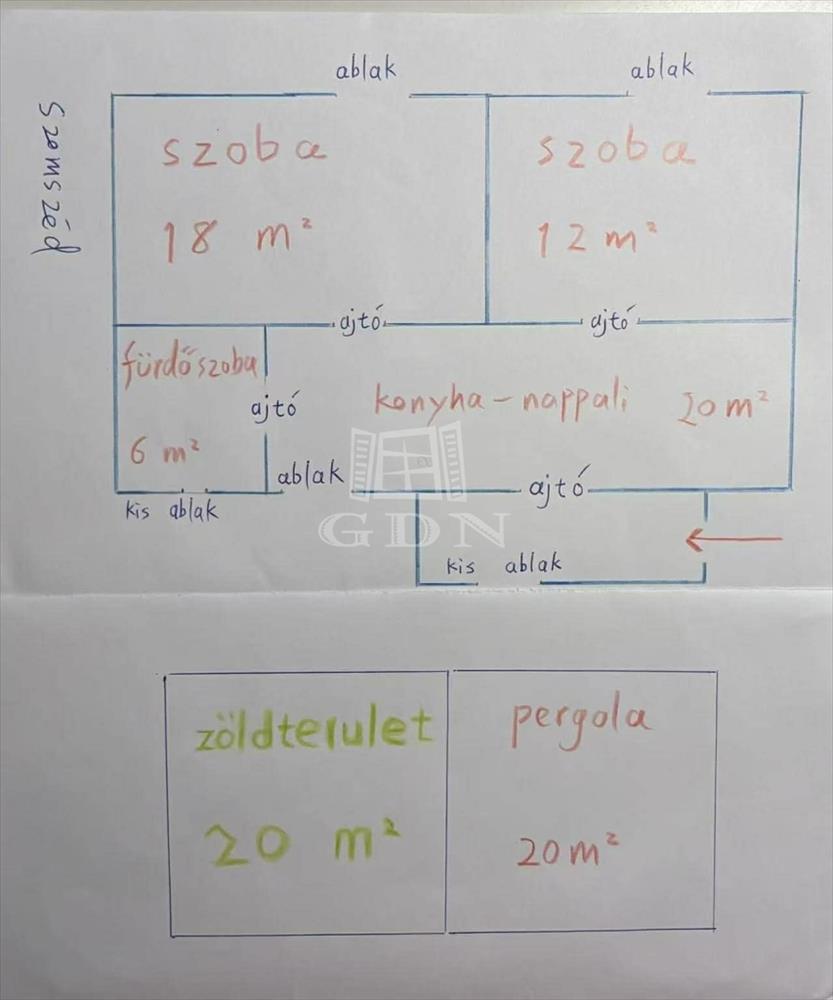 ablak
ablak
szomszéd
szoba
18 m²
szoba
12 m²
ajtó
ajtó
fürdőszoba
6 m²
ajtó
konyha - nappali 20 m²
ablak
ajtó
kis ablak
GDN
kis ablak
zöldterulet
20 m²
pergola
20 m²